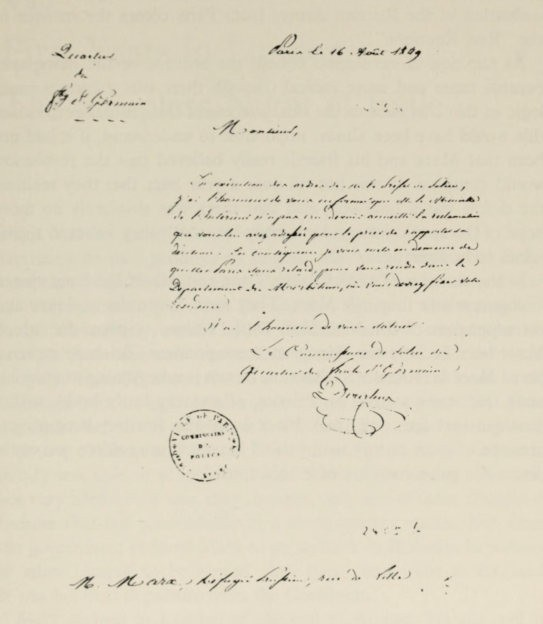 Quartier
du
fg St Germain
Paris le 16 Août 1849
Monsieur,
En exécution des ordres de M. le Préfet de Police,
j'ai l'honneur de vous informer que M. le Ministre
de l'Intérieur n'a pas cru devoir accueillir la réclamation
que vous lui avez adressée pour le prier de rapporter sa
décision. En conséquence je vous mets en demeure de
quitter Paris sans retard, pour vous rendre dans le
Département du Morbihan, où vous devez fixer votre
résidence.
J'ai l'honneur de vous saluer
Le Commissaire de Police du
Quartier du faubg St Germain
COMMISSAIRE
DE
POLICE
M. Marx, réfugié Prussien, rue de Lille